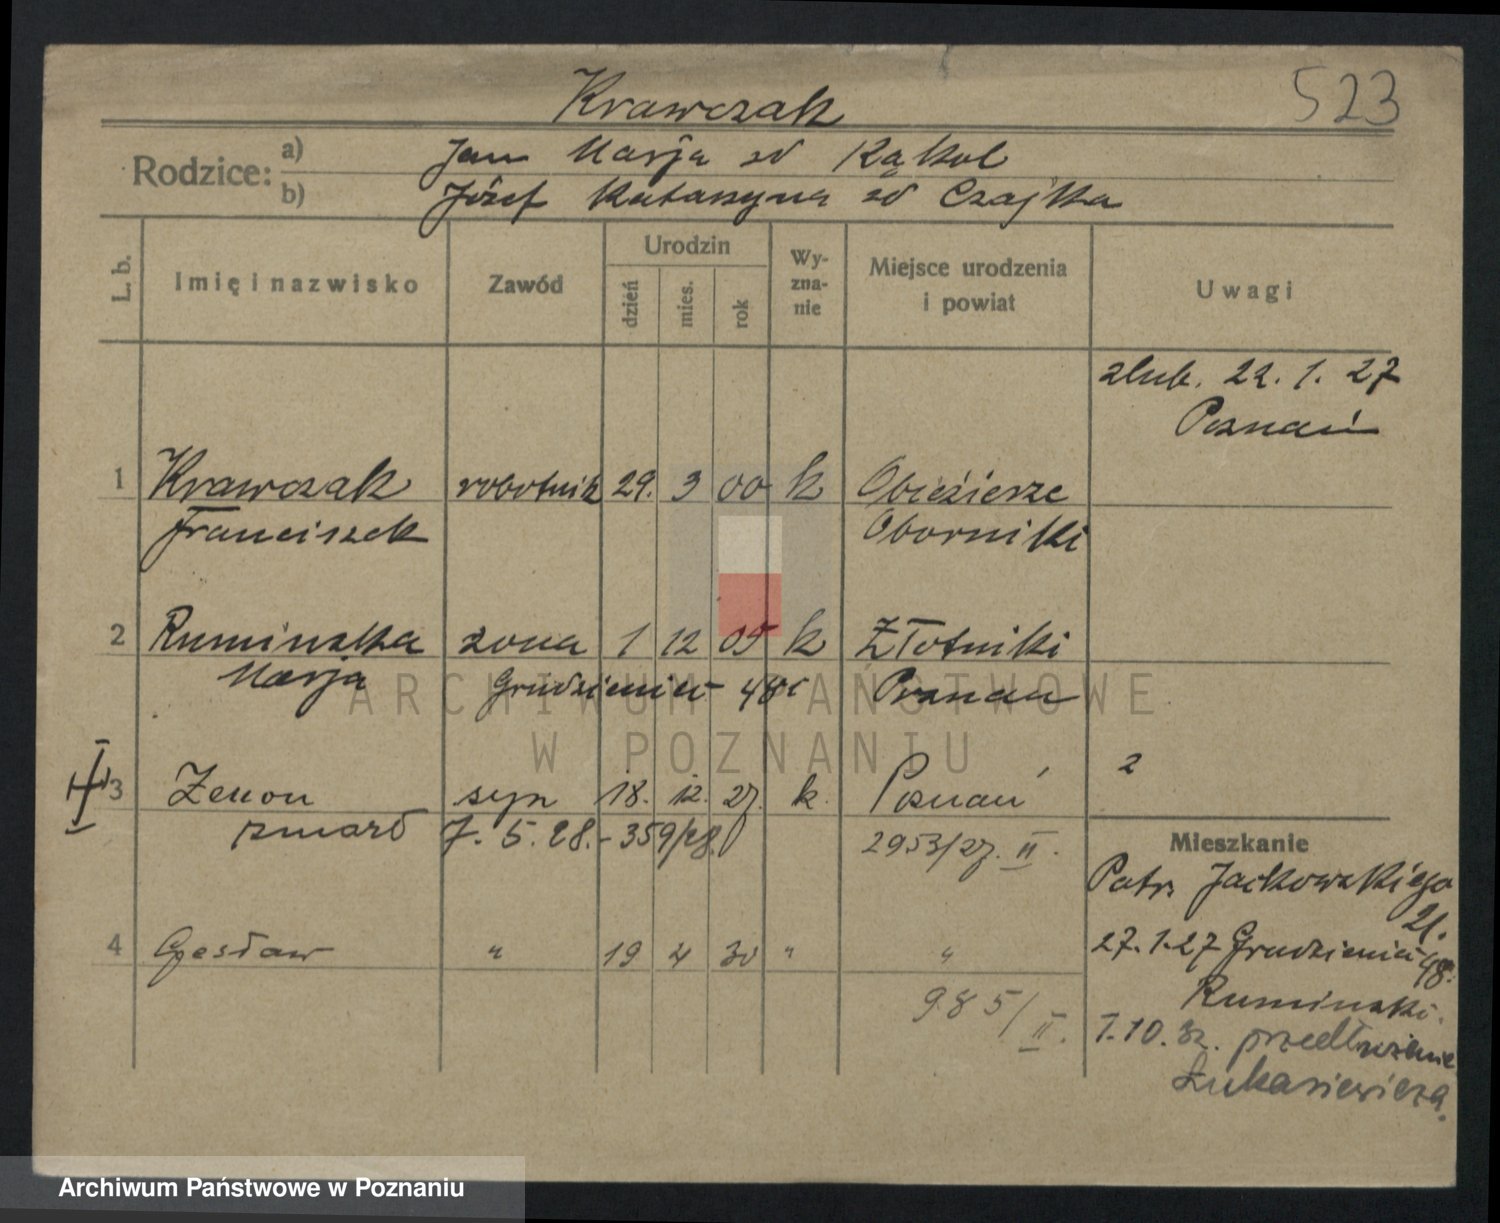 Krawczak
523
Rodzice:
a) Jan Marja zd Kąkol
b) Józef Katarzyna zd Czajka
L. b.
Imię i nazwisko
Zawód
Urodzin
dzień
mies.
rok
Wy-
zna-
nie
Miejsce urodzenia
i powiat
Uwagi
zlub. 22. 1. 27
Poznań
1 Krawczak robotnik 29. 3 00 k Obieźierze
Franciszek Oborniki
2 Ruminska zona 1 12 05 k Złotniki
Marja Grudzieniec 48c Poznań
3 Zenon syn 18. 12. 27. k. Poznań 2
zmarł 7. 5. 28. - 359/28. 2953/27. II.
Mieszkanie
Patr. Jackowskiego
21.
4 Czesław " 19 4 30 " "
27. 1. 27 Grudzieniec
48.
985/II.
Ruminski.
1. 10. 32. przedłużenie
Łukasiewicza.
ARCHIWUM PAŃSTWOWE
W POZNANIU
Archiwum Państwowe w Poznaniu